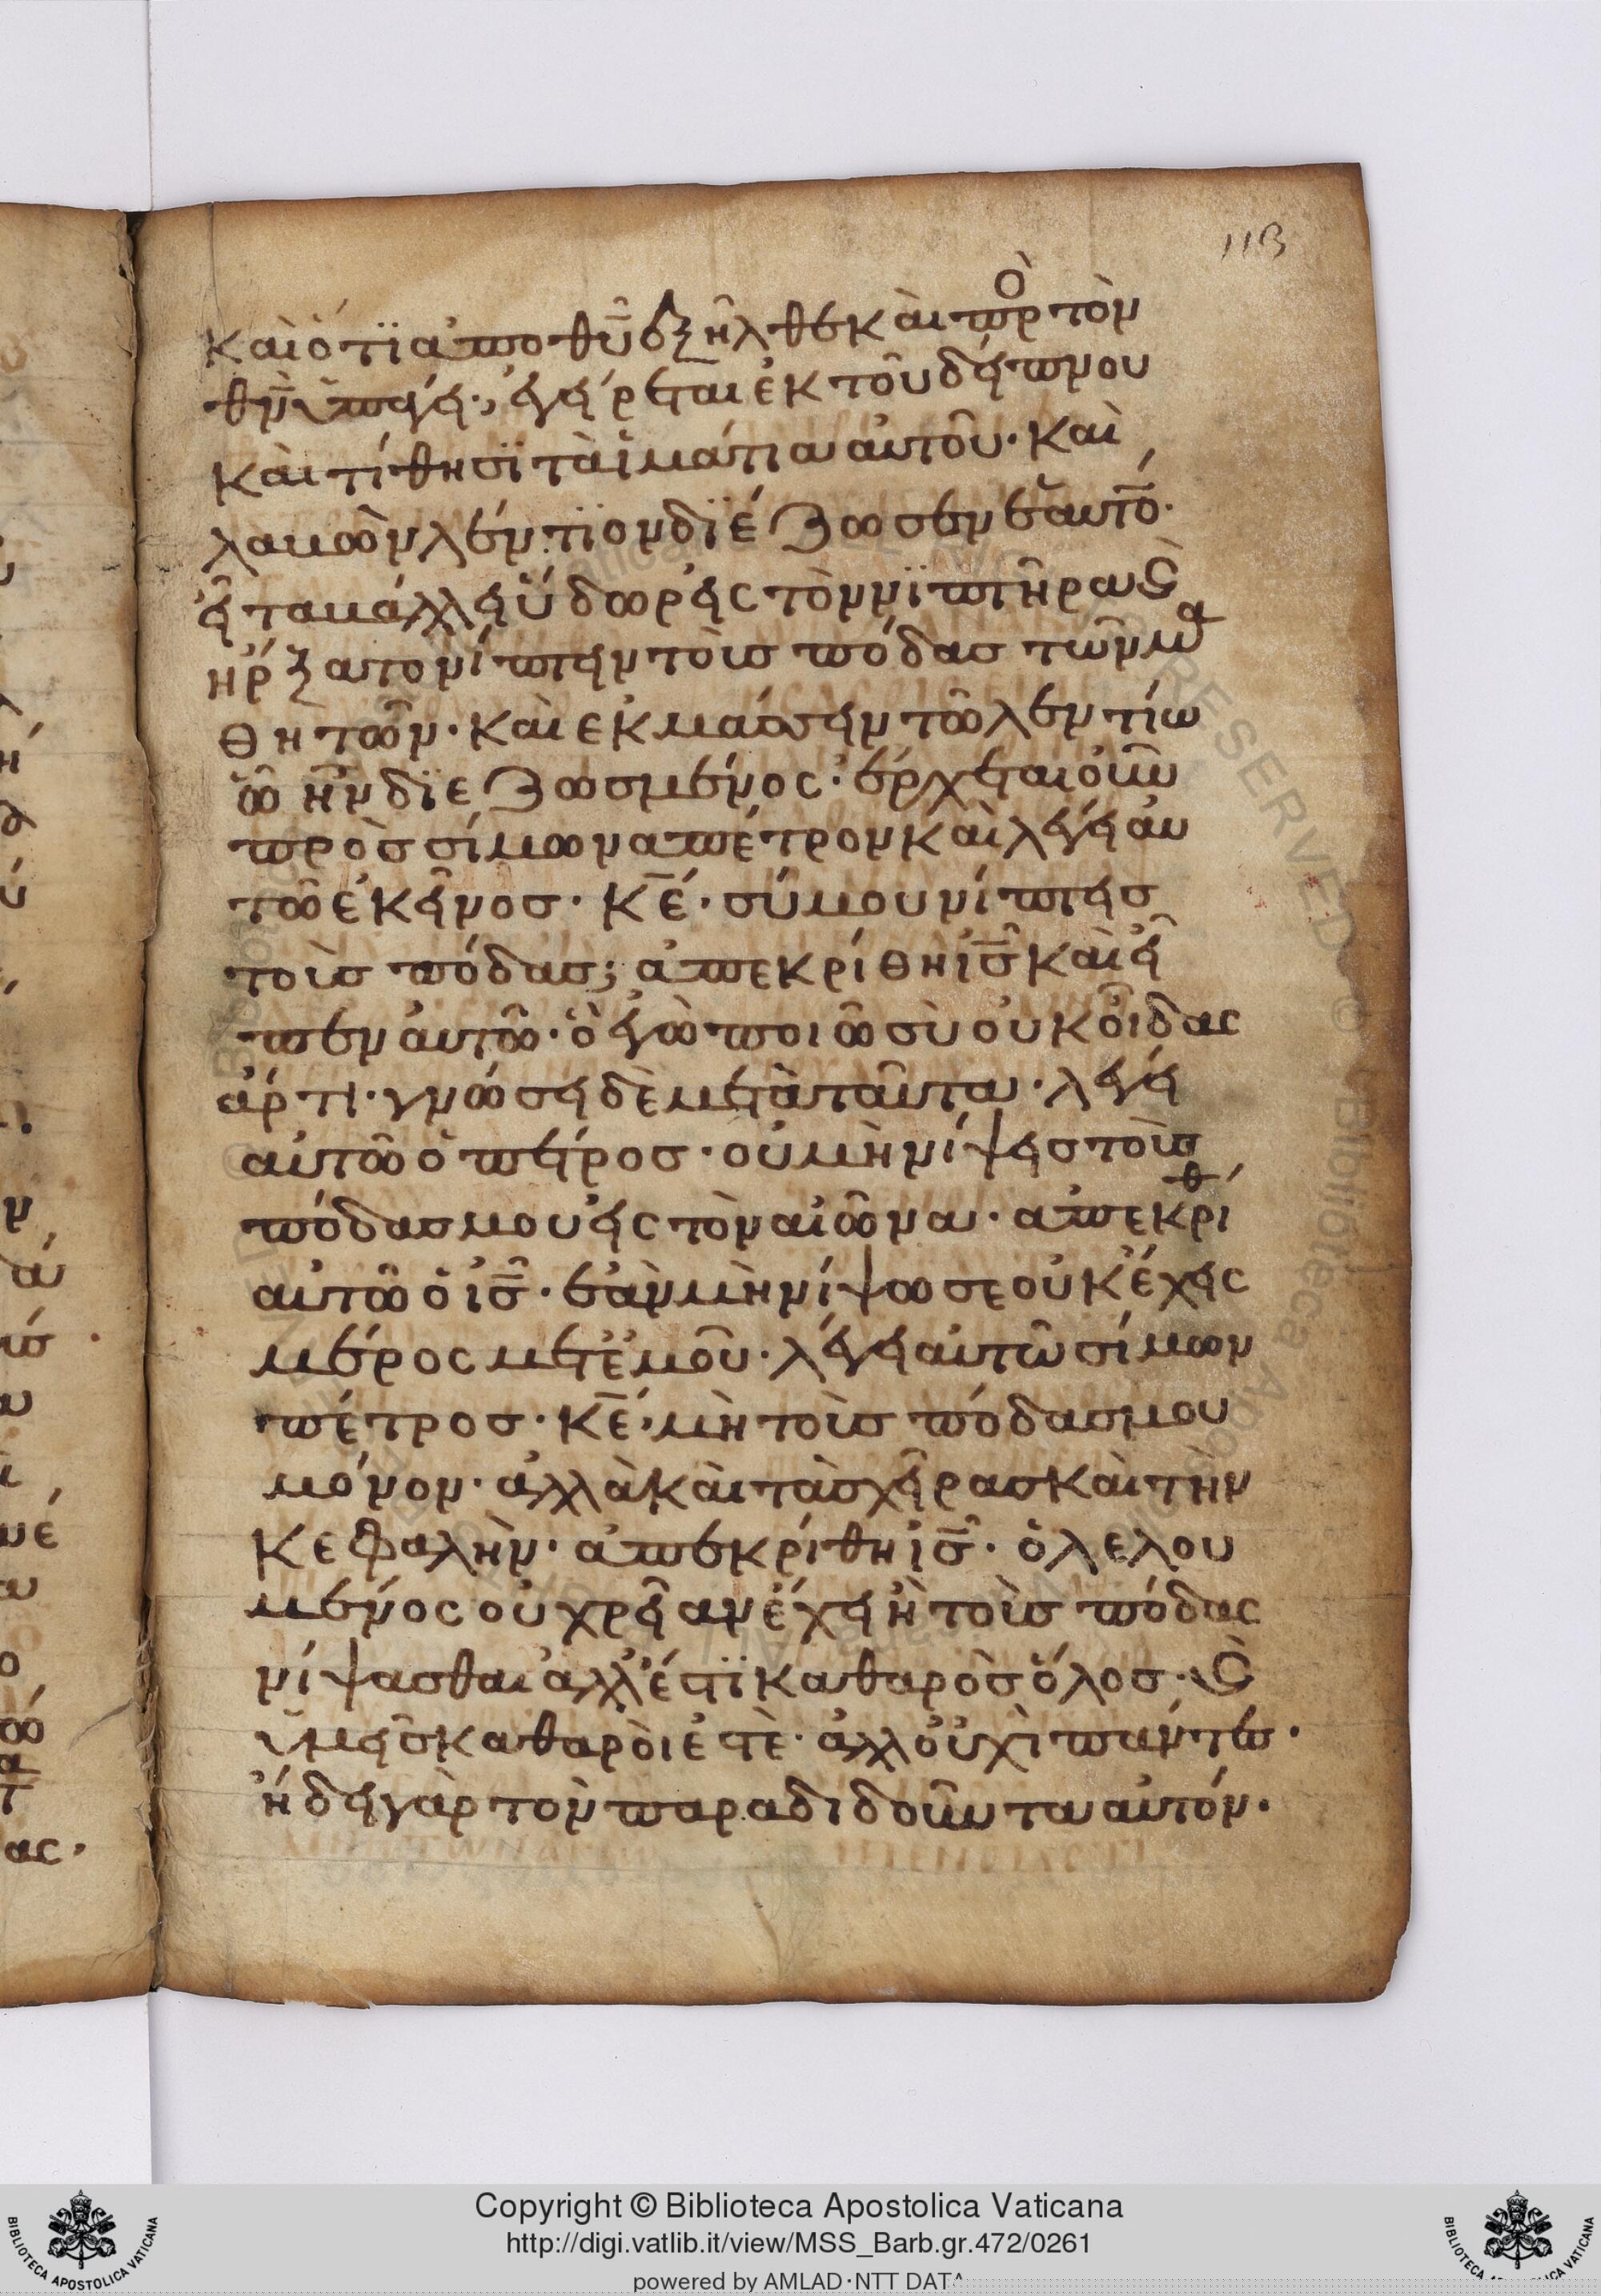 113
καὶ ὅτι ἀπὸ θυ ἐξῆλθε καὶ πρὸ τὸν
θν ὑπάγει· ἐγείρεται ἐκ τοῦ δείπνου
καὶ τίθησϊ τὰ ἱμάτια αὐτοῦ· καὶ
λαμὼν λέντϊον διέζωσεν ἑαυτό·
εἶτα μάλλει ὕδωρ εἰς τὸν νϊπτῆρα ϛ
ἤρξατο νίπτειν τοὺς πόδας τῶν μα
θητῶν· καὶ ἐκμάσσειν τῶ λεντίω
ὧ ἦν διεζωσμένος· ἔρχεται οὖν
πρὸς σίμωνα πέτρον καὶ λέγει αὐ
τῶ ἐκεῖνος· κε· σύ μου νίπτεις
τοὺς πόδας; ἀπεκρίθη ις καὶ εἶ
πεν αὐτῶ· ὃ ἐγὼ ποιῶ σὺ οὐκ οἶδας
ἄρτι· γνώσει δὲ μετὰ ταῦτα· λέγει
αὐτῶ ὁ πέτρος· οὐ μὴ νίψεις τοὺς
πόδας μου εἰς τὸν αἰῶνα· ἀπεκρίθ
αὐτῶ ὁ ις· ἐὰν μὴ νίψω σε οὐκ ἔχεις
μέρος μετ' ἐμοῦ· λέγει αὐτῶ σίμων
πέτρος· κε· μὴ τοὺς πόδας μου
μόνον· ἀλλὰ καὶ τὰς χεῖρας καὶ τὴν
κεφαλὴν· ἀπεκρίθη ις· ὁ λελου
μένος οὐ χρείαν ἔχει ἢ τοὺς πόδας
νίψασθαι ἀλλ' ἔστϊ καθαρὸς ὅλος· ϛ
ὑμεῖς καθαροὶ ἐστὲ· ἀλλ' οὐχὶ πάντες·
ἤδει γὰρ τὸν παραδιδοῦντα αὐτόν·
Copyright © Biblioteca Apostolica Vaticana
http://digi.vatlib.it/view/MSS_Barb.gr.472/0261
powered by AMLAD·NTT DATA
BIBLIOTECA APOSTOLICA VATICANA
BIBLIOTECA APOSTOLICA VATICANA